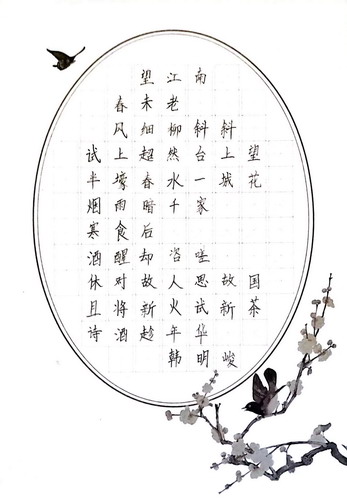 望江南
春未老
风细柳斜斜
试上超然台上望
半壕春水一城花
烟雨暗千家
寒食后
酒醒却咨嗟
休对故人思故国
且将新火试新茶
诗酒趁年华
韩明峻